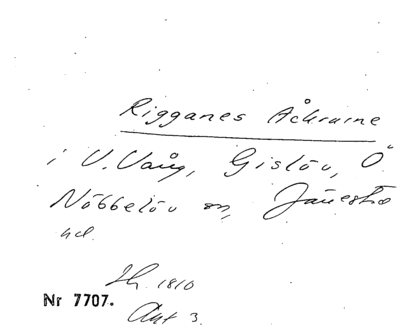 Rigganes Åkrarne
i V. Vång, Gislöv, Ö
Nöbbelöv sn, Järrestad
hd.
Lh. 1810
Nr 7707.
Akt 3.